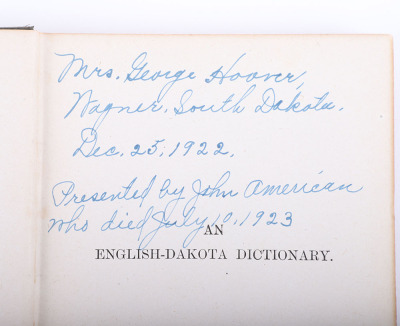 Mrs. George Hoover,
Wagner, South Dakota.
Dec. 25, 1922.
Presented by John American
who died July 10, 1923
AN
ENGLISH-DAKOTA DICTIONARY.